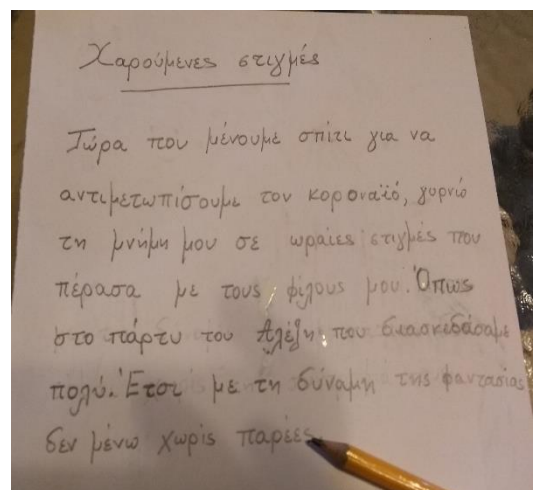 Χαρούμενες στιγμές
Τώρα που μένουμε σπίτι για να
αντιμετωπίσουμε τον κοροναϊό, γυρνώ
τη μνήμη μου σε ωραίες στιγμές που
πέρασα με τους φίλους μου. Όπως
στο πάρτυ του Αλέξη που διασκεδάσαμε
πολύ. Έτσι με τη δύναμη της φαντασίας
δεν μένω χωρίς παρέες